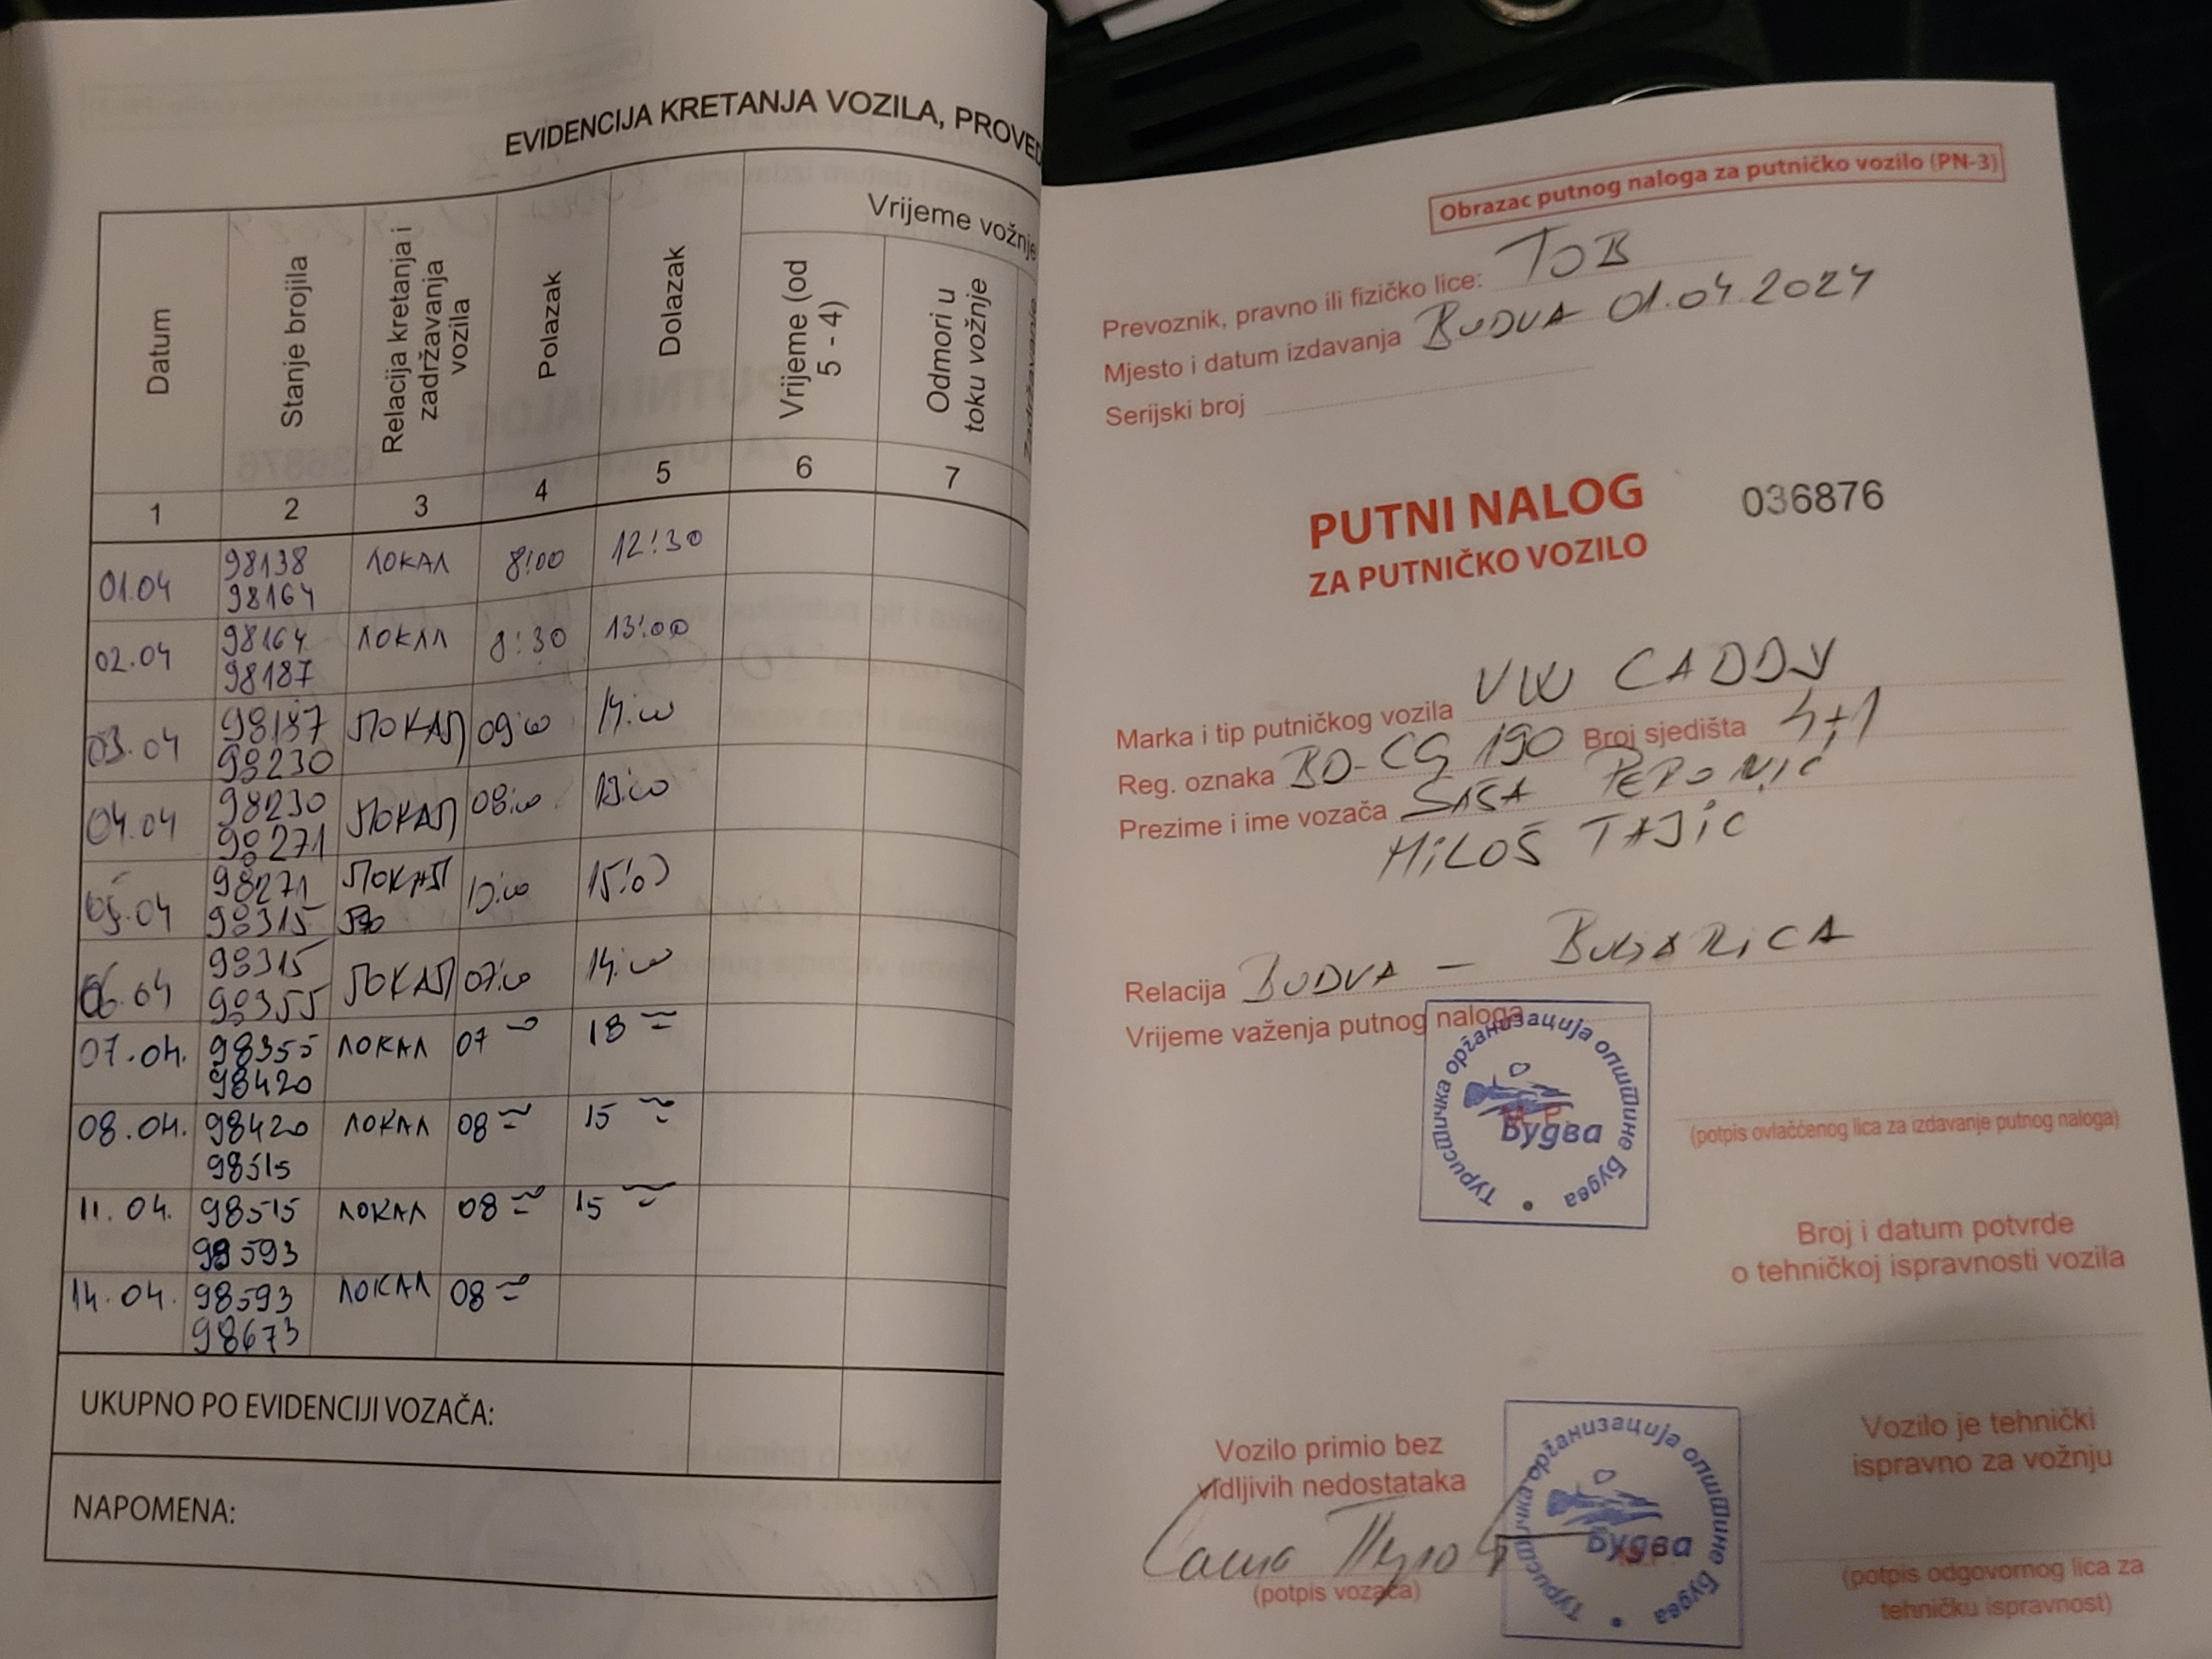 EVIDENCIJA KRETANJA VOZILA, PROVED
Datum
Stanje brojila
Relacija kretanja i zadržavanja vozila
Polazak
Dolazak
Vrijeme vožnje
Vrijeme (od 5 - 4)
Odmori u toku vožnje
Zadržavanje
1 2 3 4 5 6 7
01.04 98138 ЛОКАЛ 8:00 12:30
98164
02.04 98164 ЛОКАЛ 8:30 13:00
98187
03.04 98187 ЛОКАЛ 09:00 14:00
98230
04.04 98230 ЛОКАЛ 08:00 13:00
98271
05.04 98271 ЛОКАЛ 10:00 15:00
98315
06.04 98315 ЛОКАЛ 07:00 14:00
98355
07.04. 98355 ЛОКАЛ 07 18
98420
08.04. 98420 ЛОКАЛ 08 15
98515
11.04. 98515 ЛОКАЛ 08 15
98593
14.04. 98593 ЛОКАЛ 08
98673
UKUPNO PO EVIDENCIJI VOZAČA:
NAPOMENA:
Obrazac putnog naloga za putničko vozilo (PN-3)
Prevoznik, pravno ili fizičko lice: TOB
Mjesto i datum izdavanja BUDVA 01.04.2024
Serijski broj
PUTNI NALOG 036876
ZA PUTNIČKO VOZILO
Marka i tip putničkog vozila VW CADDY
Reg. oznaka BD-CG 190 Broj sjedišta 4+1
Prezime i ime vozača SAŠA
MILOŠ TAJIĆ
Relacija BUDVA – BULJARICA
Vrijeme važenja putnog naloga
Туристичка организација општине Будва
M.P.
Будва
(potpis ovlaščenog lica za izdavanje putnog naloga)
Broj i datum potvrde
o tehničkoj ispravnosti vozila
Vozilo primio bez
vidljivih nedostataka
Саша
(potpis vozača)
Туристичка организација општине Будва
Будва
Vozilo je tehnički
ispravno za vožnju
(potpis odgovornog lica za
tehničku ispravnost)